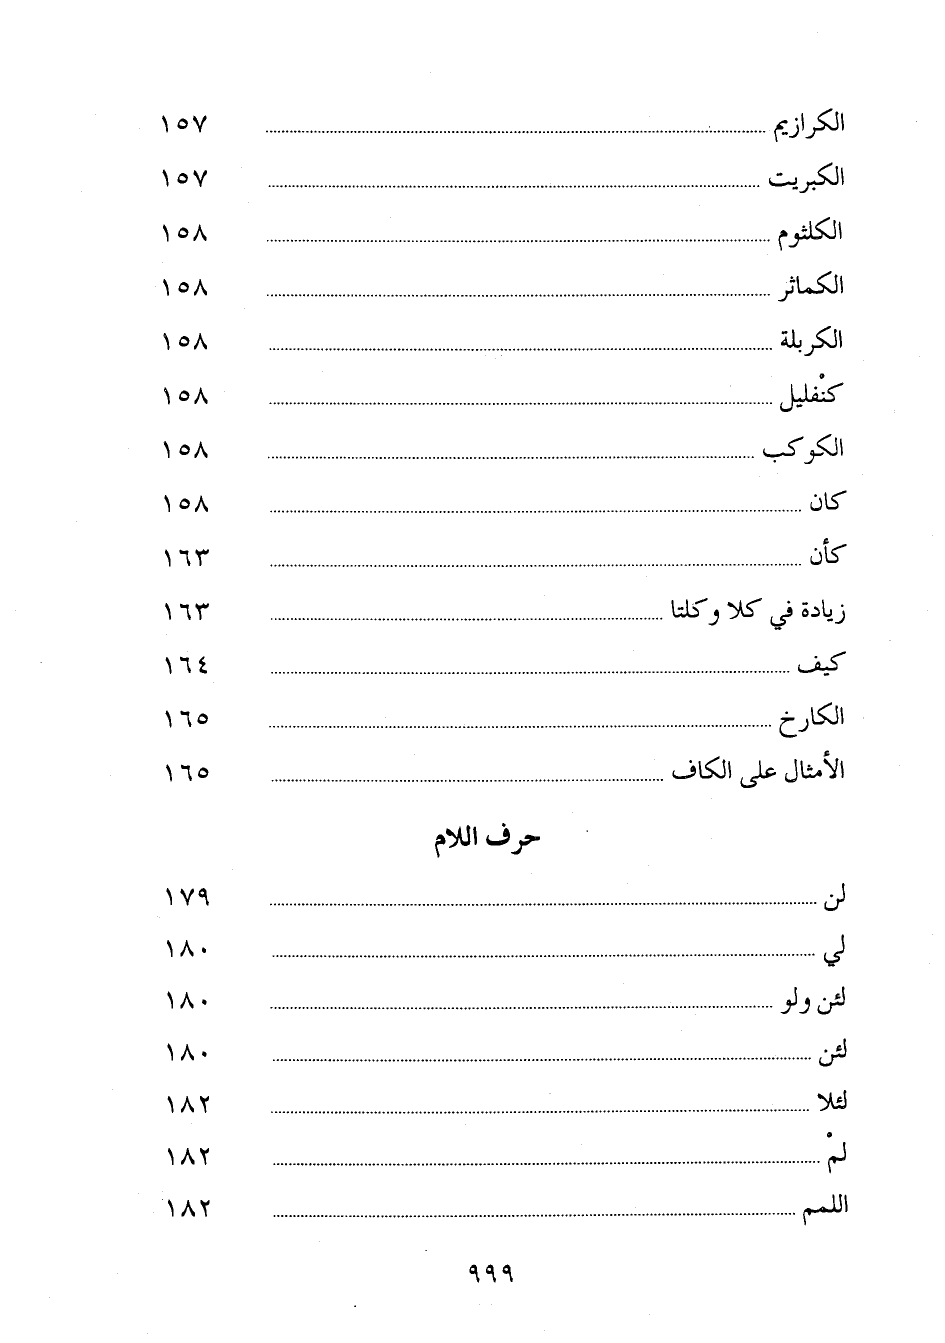 الكرازيم ........ ١٥٧
الكبريت ........ ١٥٧
الكلثوم ........ ١٥٨
الكماثر ........ ١٥٨
الكربلة ........ ١٥٨
كنْفليل ........ ١٥٨
الكوكب ........ ١٥٨
كان ........ ١٥٨
كأن ........ ١٦٣
زيادة في كلا وكلتا ........ ١٦٣
كيف ........ ١٦٤
الكارخ ........ ١٦٥
الأمثال على الكاف ........ ١٦٥
حرف اللام
لن ........ ١٧٩
لي ........ ١٨٠
لئن ولو ........ ١٨٠
لئن ........ ١٨٠
لئلا ........ ١٨٢
لمْ ........ ١٨٢
اللمم ........ ١٨٢
٩٩٩